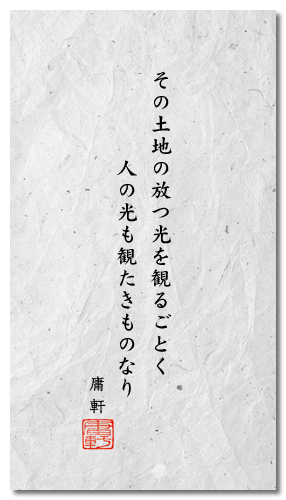 その土地の放つ光を観るごとく
人の光も観たきものなり
庸軒
庸軒